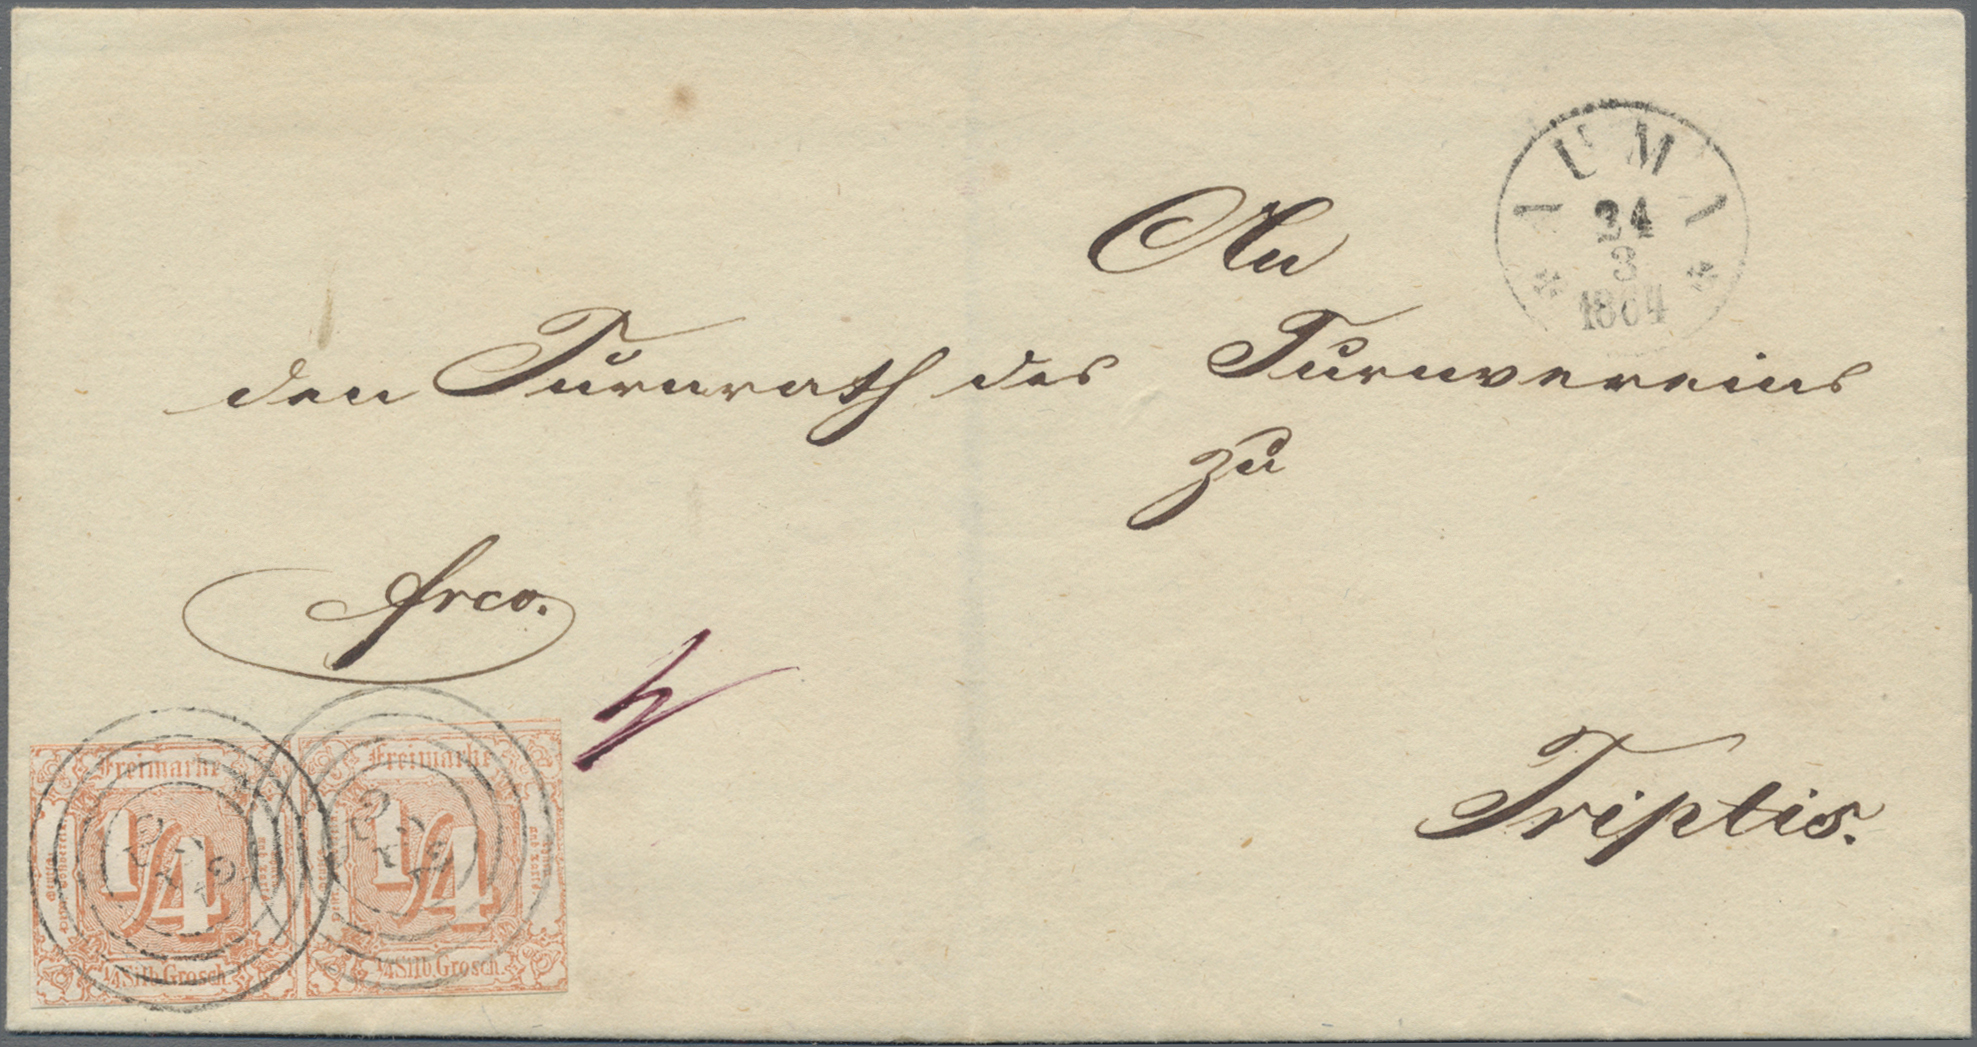 AUMA
24
3
1864
An
den Turnrath des Turnvereins
zu
frco.
Triptis.
Freimarke
1/4
1/4 Silb. Grosch.
Freimarke
1/4
1/4 Silb. Grosch.